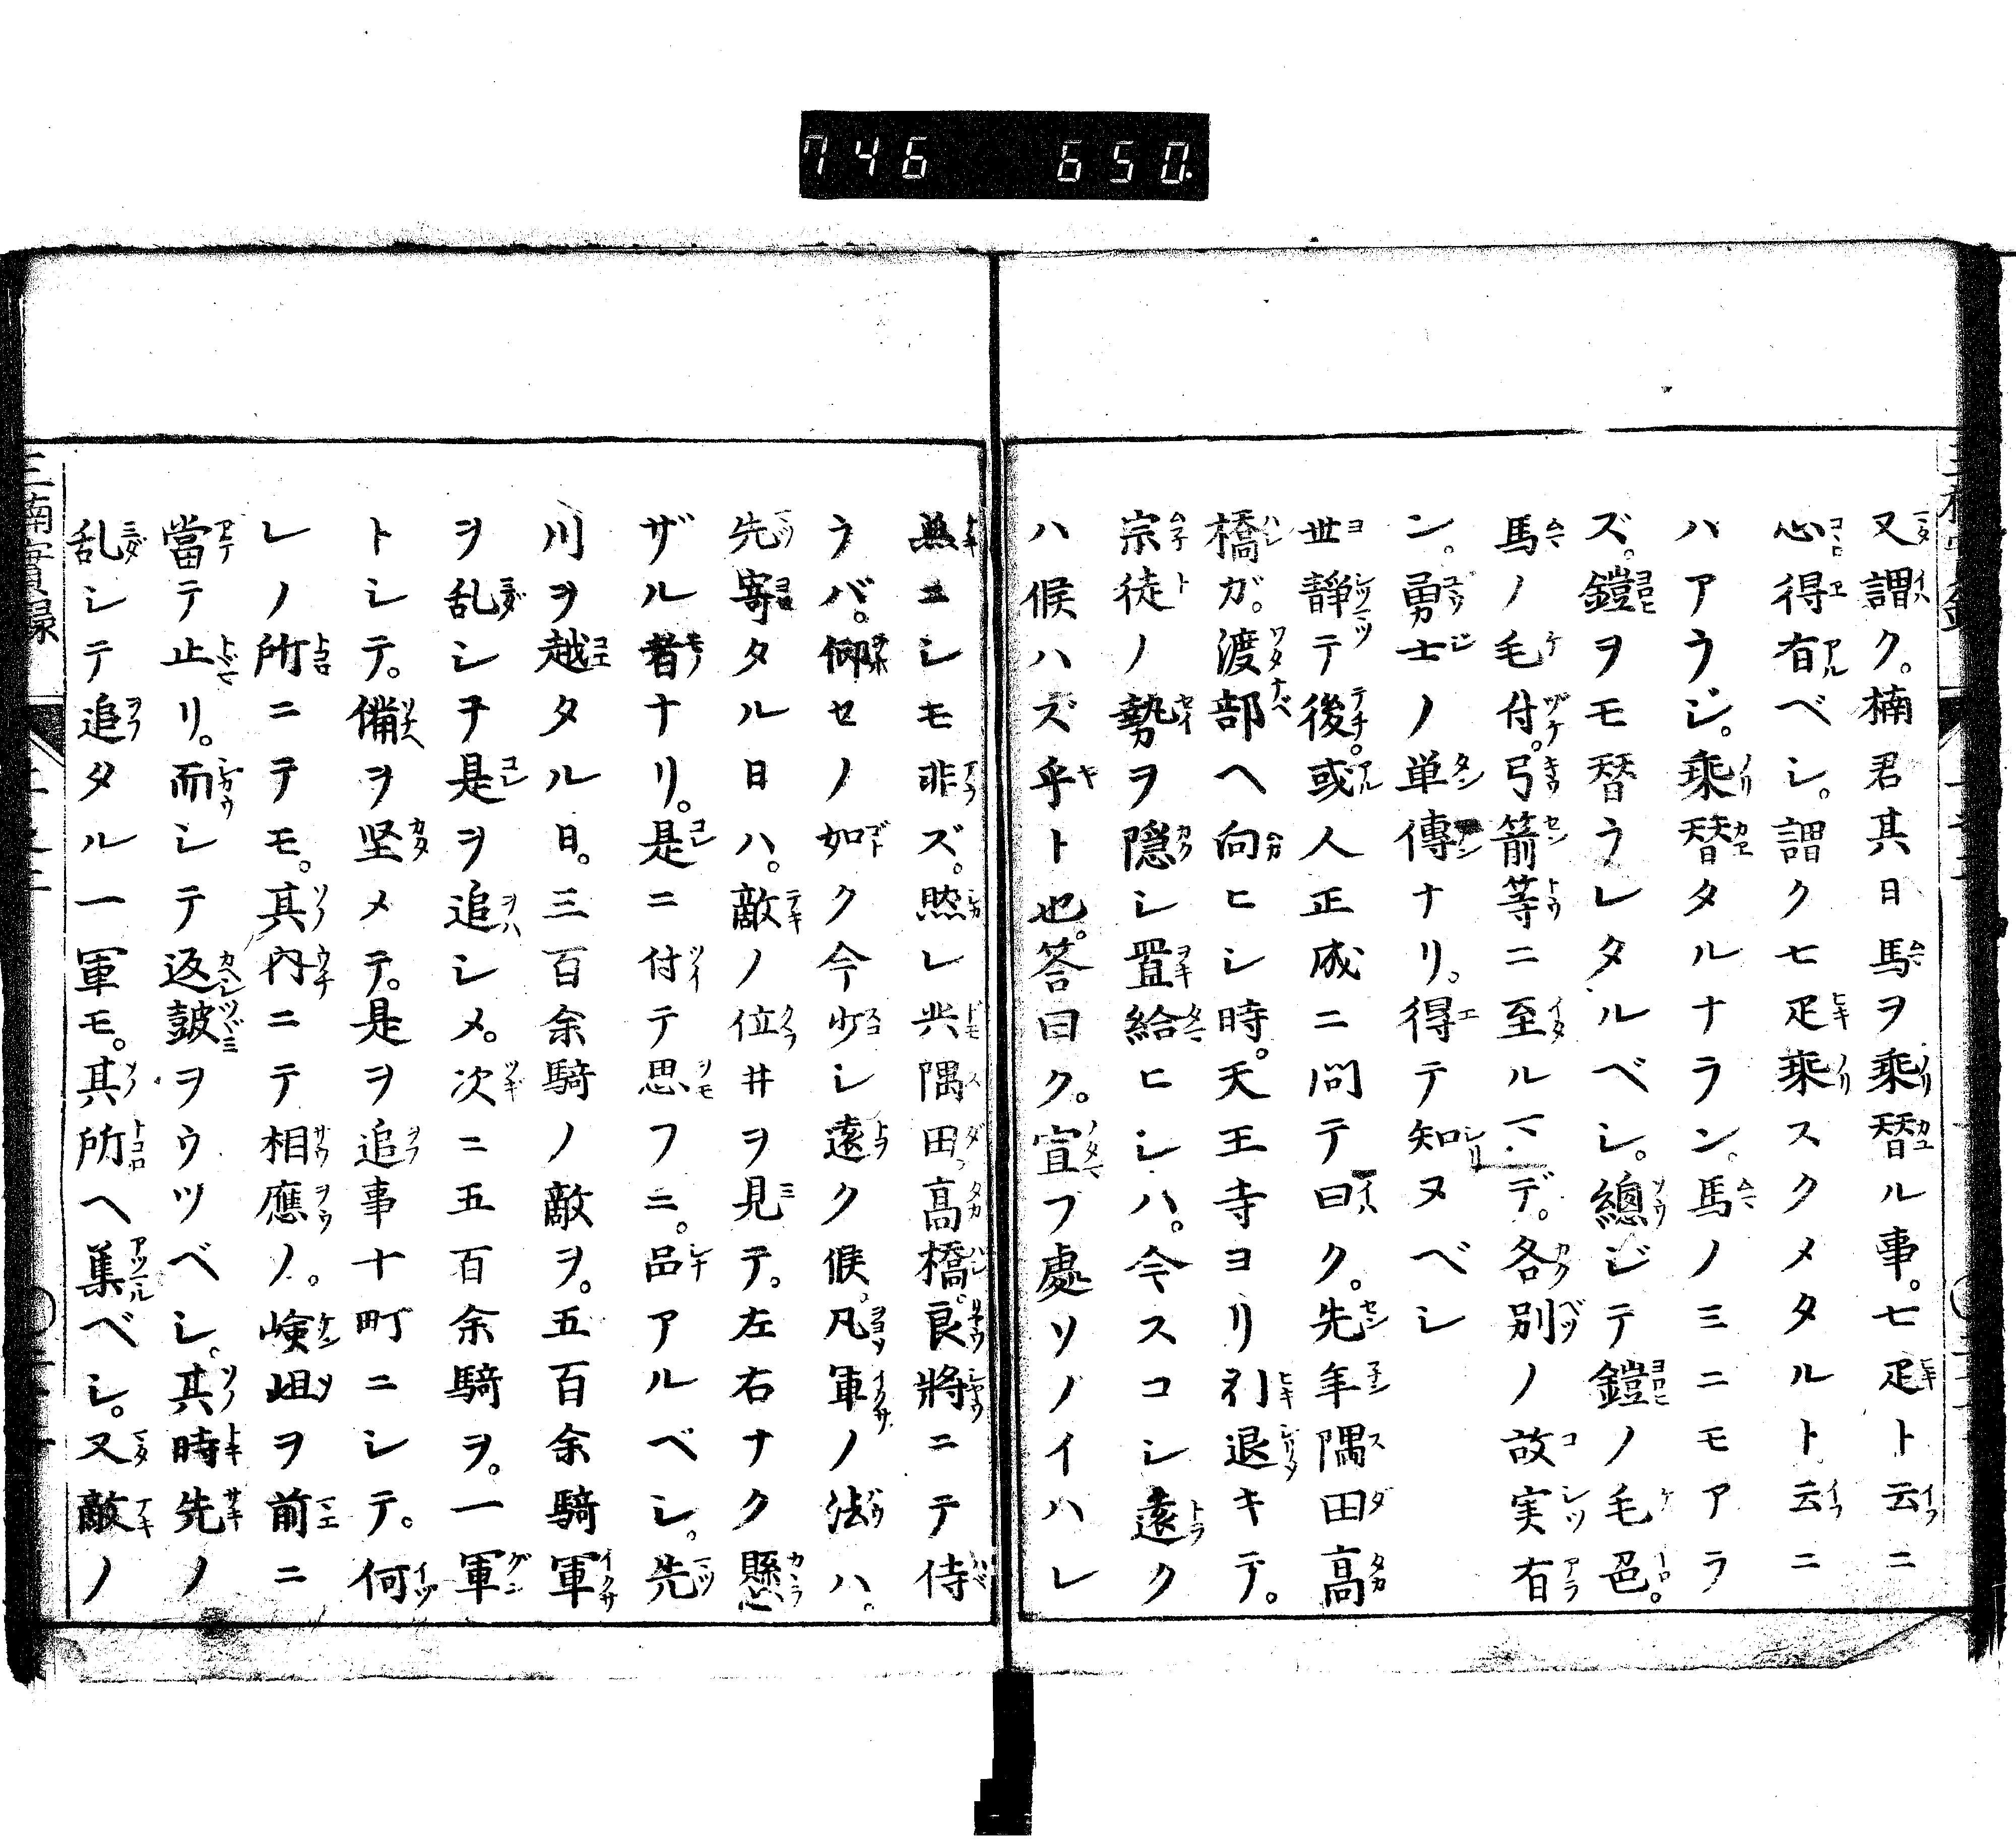 746 650.
又謂ク。楠君其日馬ヲ乘替ル事。七疋ト云ニ
心得有ベシ。謂ク七疋乘スクメタルト云ニ
ハアラジ。乘替タルナラン。馬ノミニモアラ
ズ。鎧ヲモ替ラレタルベシ。總ジテ鎧ノ毛色。
馬ノ毛付。弓箭等ニ至ルマデ。各別ノ故実有
ン。勇士ノ単傳ナリ。得テ知ヌベシ
世靜テ後。或人正成ニ問テ曰ク。先年隅田高
橋ガ。渡部ヘ向ヒシ時。天王寺ヨリ引退キテ。
宗徒ノ勢ヲ隠シ置給ヒシハ。今スコシ遠ク
ハ候ハズ乎ト也。答曰ク。宣フ處ソノイハレ
無ニシモ非ズ。然レ共隅田高橋。良將ニテ侍
ラバ。仰セノ如ク今少シ遠ク候。凡軍ノ法ハ。
先寄タル日ハ。敵ノ位井ヲ見テ。左右ナク懸
ザル者ナリ。是ニ付テ思フニ。品アルベシ。先
川ヲ越タル日。三百余騎ノ敵ヲ。五百余騎軍
ヲ乱シヲ是ヲ追シメ。次ニ五百余騎ヲ。一軍
トシテ。備ヲ堅メテ。是ヲ追事十町ニシテ。何
レノ所ニテモ。其内ニテ相應ノ。嶮岨ヲ前ニ
當テ止リ。而シテ返鼓ヲウツベシ。其時先ノ
乱シテ追タル一軍モ。其所ヘ集ベシ。又敵ノ
三楠實録